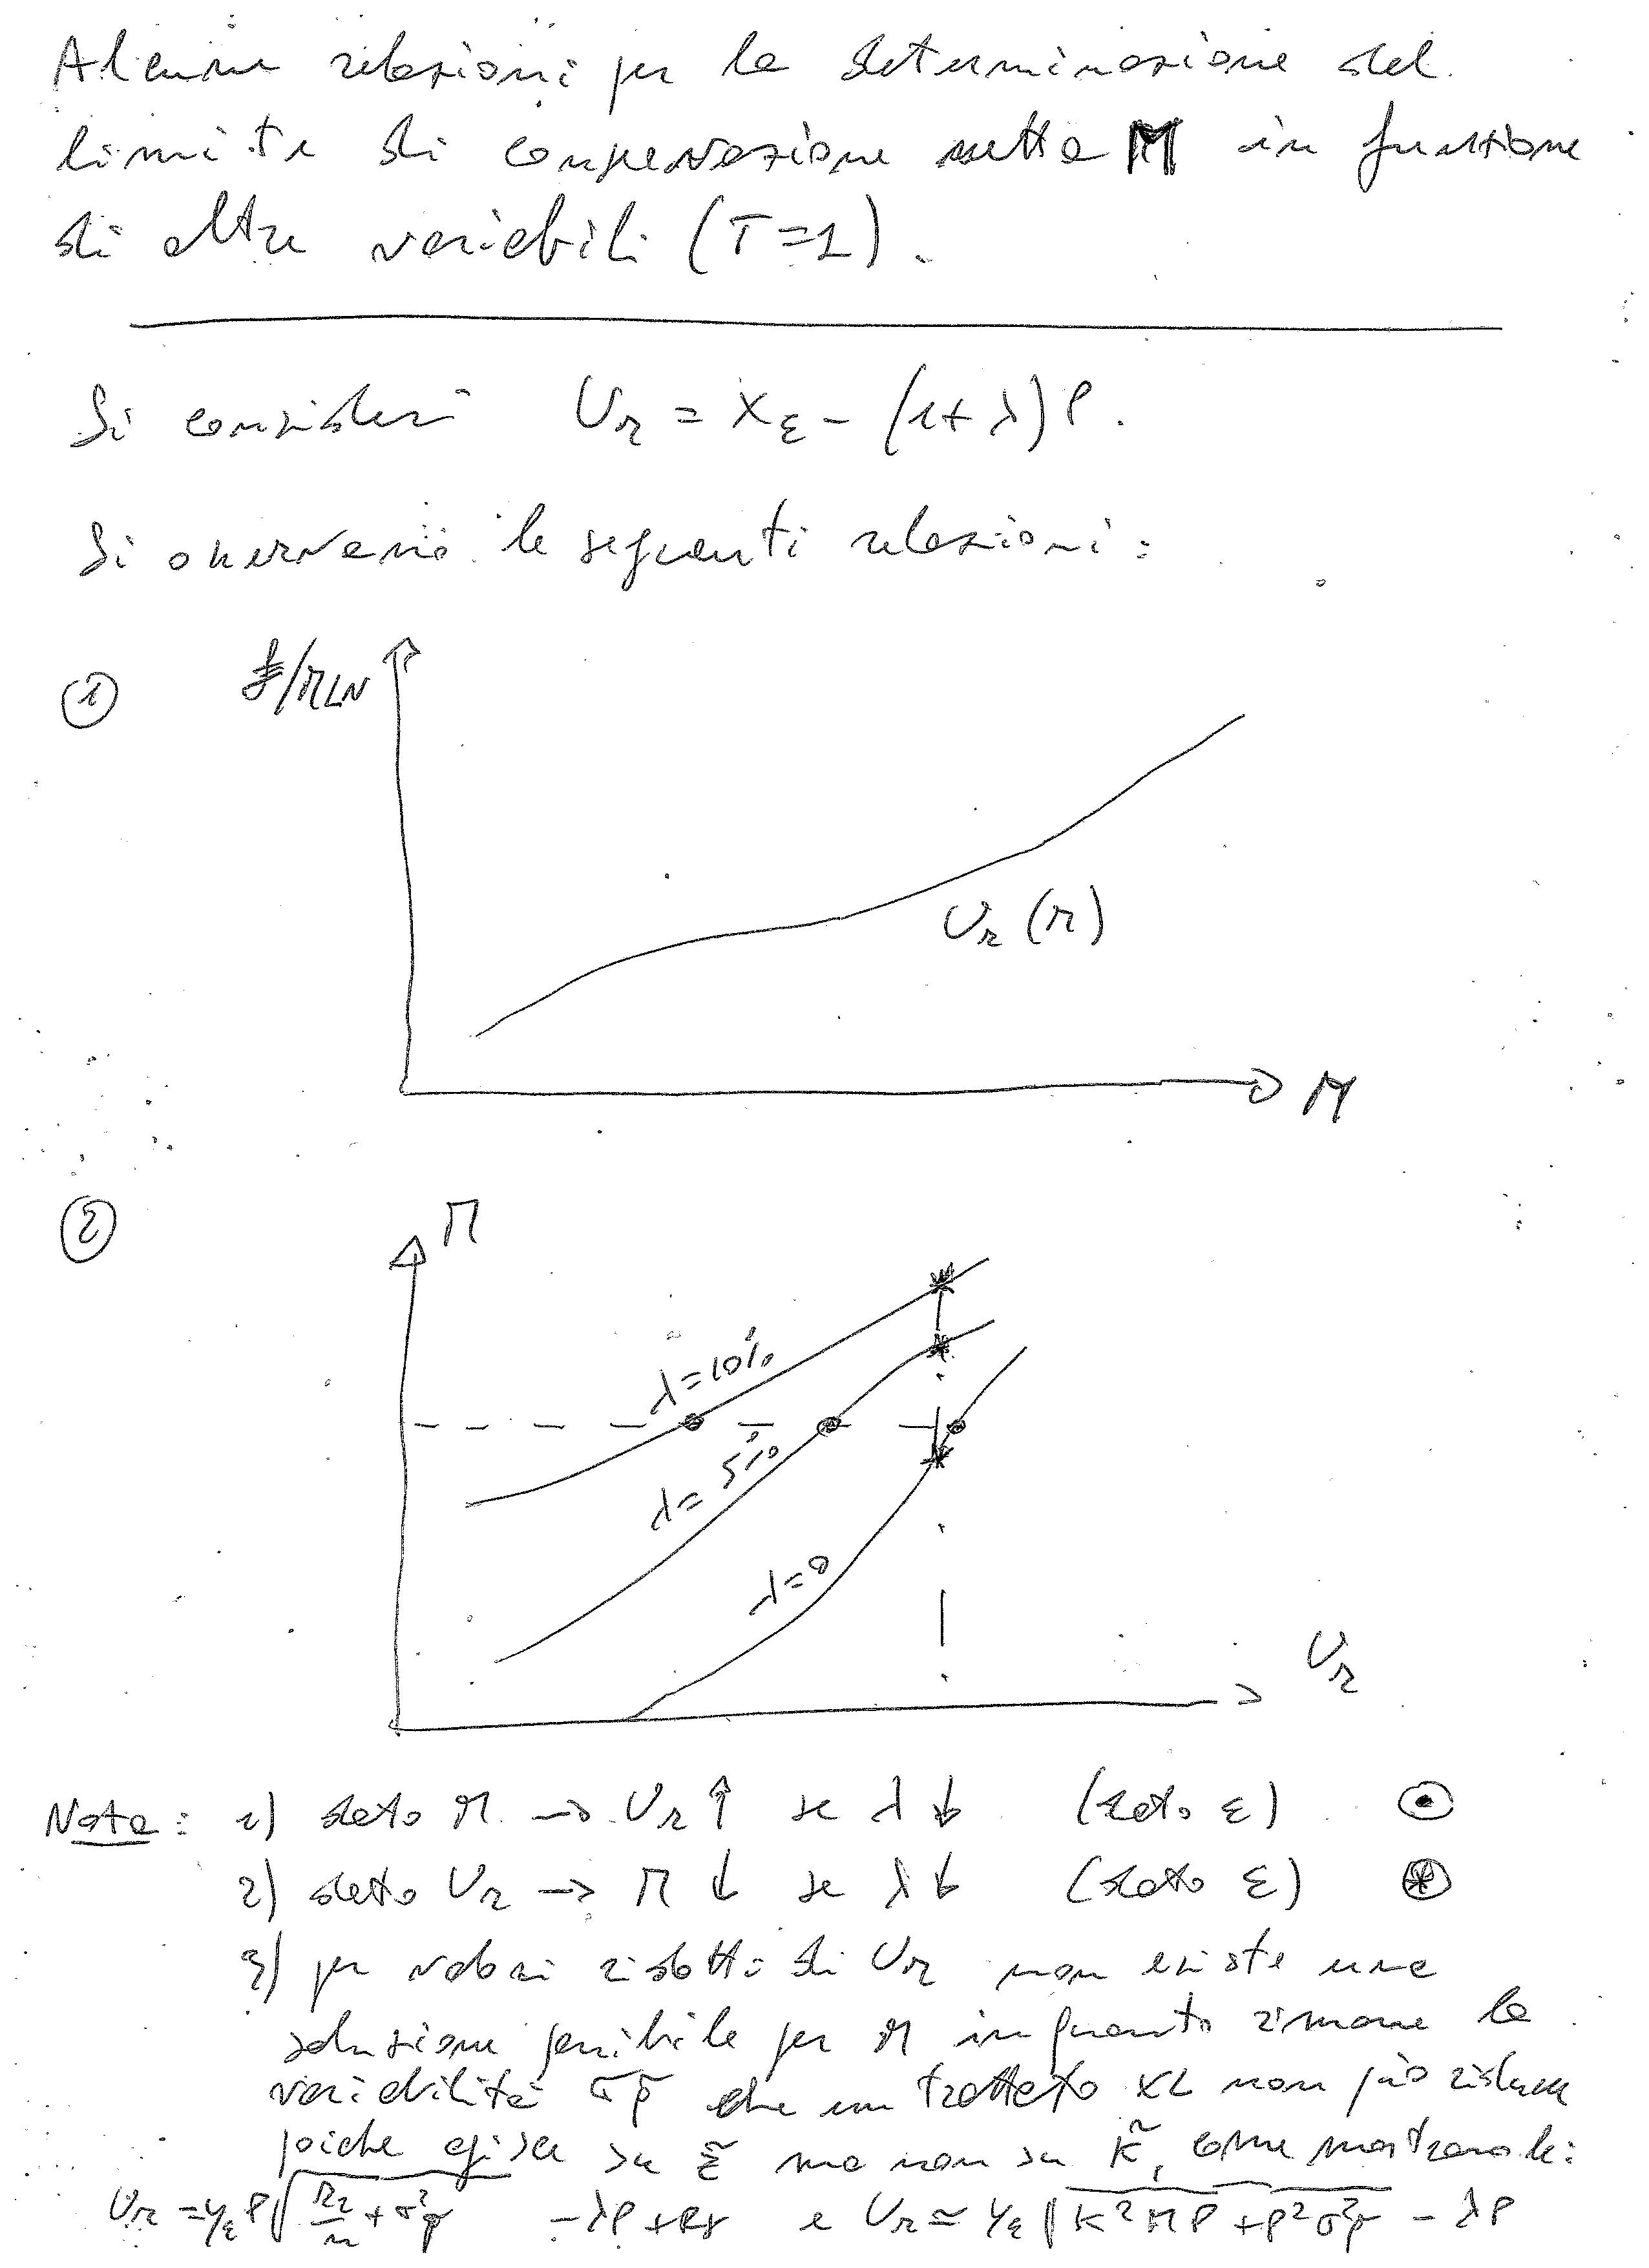 Alcune relazioni per la determinazione del
limite di conservazione netta M in funzione
di altre variabili (T=1).
Si consideri U_r = X_ε - (1+λ)P.
Si osservano le seguenti relazioni:
① £/MLN
U_r(M)
M
② M
λ=10%
λ=5%
λ=0
U_r
Nota: 1) dato M → U_r ↑ se λ ↓ (dato ε) ⊙
2) dato U_r → M ↓ se λ ↓ (dato ε) ⊛
3) per valori ridotti di U_r non esiste una
soluzione possibile per M in quanto rimane la
variabilità σ_q̃ che un trattato XL non può ridurre
poiché agisce su z̃ ma non su k̃, come mostrano le:
U_r = y_ε P√(r_2/n + σ²_q̃) - λP + Pγ e U_r ≃ y_ε √(K²MP + P²σ²_q̃) - λP